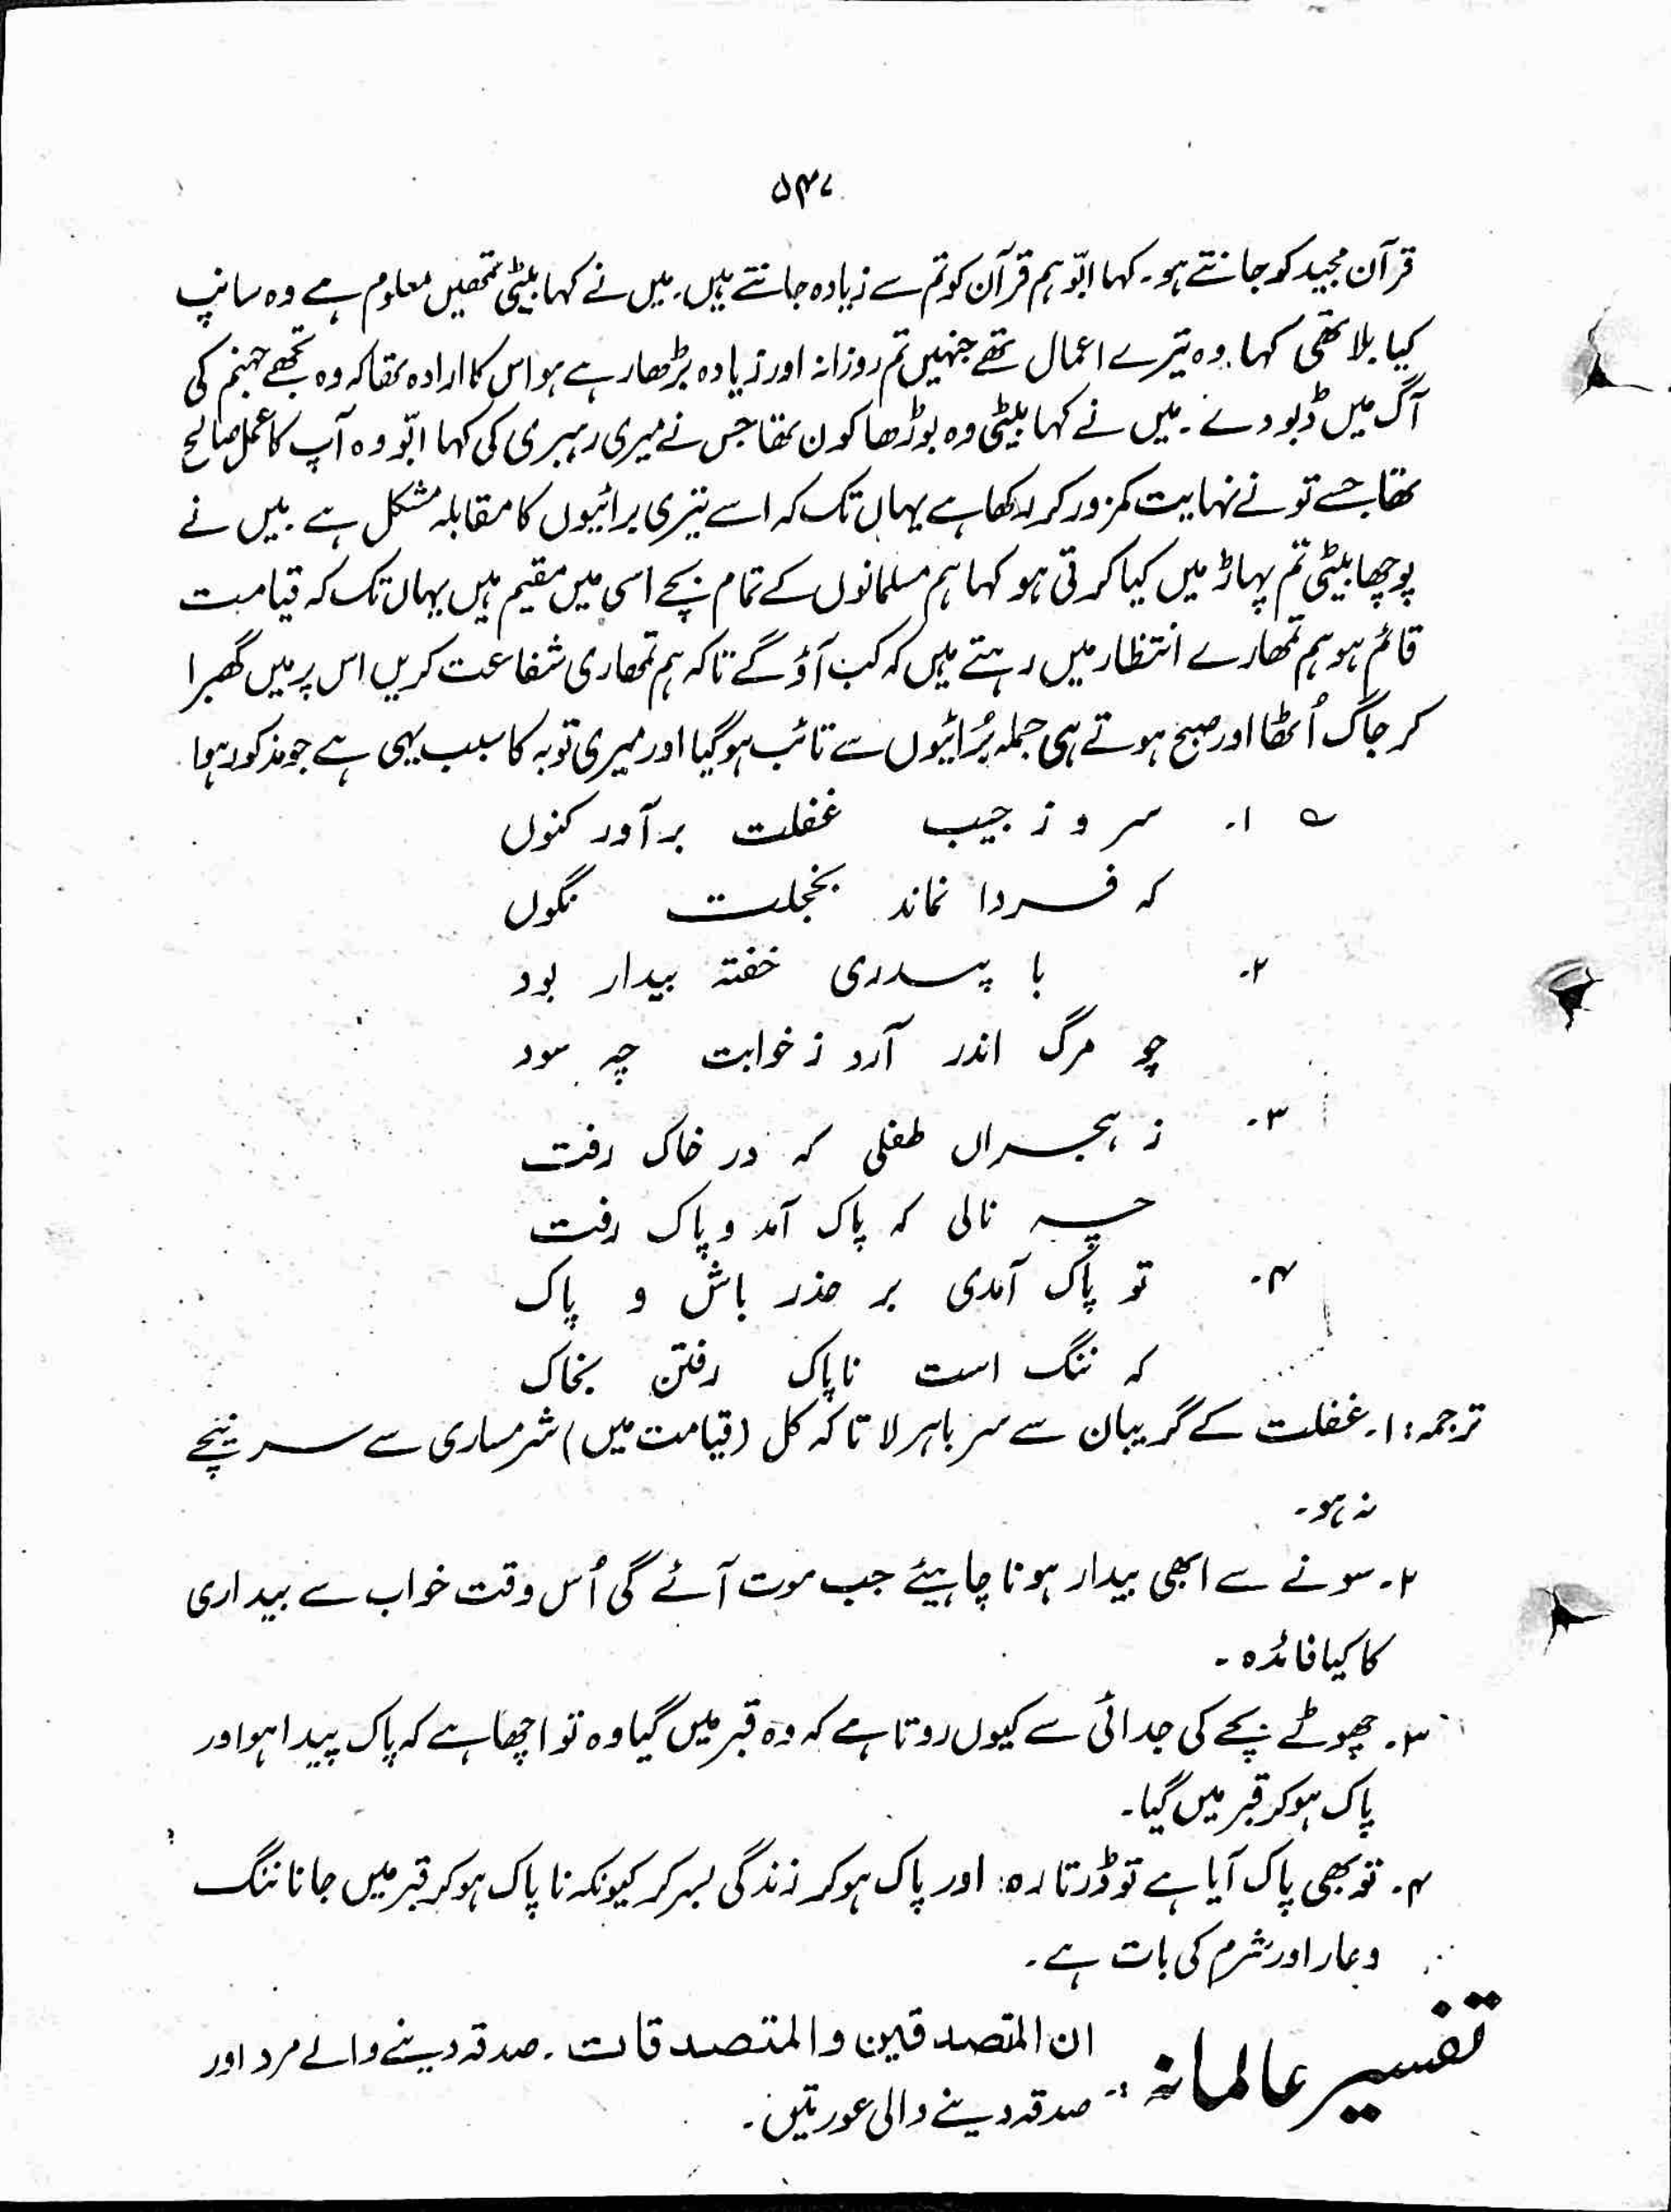 ۵۴۷
قرآن مجید کو جانتے ہو۔ کہا ابّو ہم قرآن کو تم سے زیادہ جانتے ہیں۔ میں نے کہا بیٹی تمھیں معلوم ہے وہ سانپ
کیا بلا تھی کہا۔ وہ تیرے اعمال تھے جنہیں تم روزانہ اور زیادہ بڑھا رہے ہو اس کا ارادہ تھا کہ وہ تجھے جہنم کی
آگ میں ڈبو دے۔ میں نے کہا بیٹی وہ بوڑھا کون تھا جس نے میری رہبری کی کہا ابّو وہ آپ کا عمل صالح
تھا جسے تو نے نہایت کمزور کر رکھا ہے یہاں تک کہ اسے تیری برائیوں کا مقابلہ مشکل ہے۔ میں نے
پوچھا بیٹی تم پہاڑ میں کیا کرتی ہو کہا ہم مسلمانوں کے تمام بچے اسی میں مقیم ہیں یہاں تک کہ قیامت
قائم ہو ہم تمھارے انتظار میں رہتے ہیں کہ کب آؤ گے تاکہ ہم تمھاری شفاعت کریں اس پر میں گھبرا
کر جاگ اُٹھا اور صبح ہوتے ہی جملہ بُرائیوں سے تائب ہو گیا اور میری توبہ کا سبب یہی ہے جو مذکور ہوا۔
؎ ۱۔ سر و ز جیب غفلت برآور کنوں
کہ فردا نماند بخجلت نگوں
۲۔ با پسدری خفتہ بیدار بود
چو مرگ اندر آرد ز خوابت چہ سود
۳۔ ز ہجراں طفلی کہ در خاک رفت
چہ نالی کہ پاک آمد و پاک رفت
۴۔ تو پاک آمدی بر حذر باش و پاک
کہ ننگ است ناپاک رفتن بخاک
ترجمہ: ۱۔ غفلت کے گریبان سے سر باہر لا تاکہ کل (قیامت میں) شرمساری سے سر نیچے
نہ ہو۔
۲۔ سونے سے ابھی بیدار ہونا چاہیئے جب موت آئے گی اُس وقت خواب سے بیداری
کا کیا فائدہ۔
۳۔ چھوٹے بچے کی جدائی سے کیوں روتا ہے کہ وہ قبر میں گیا وہ تو اچھا ہے کہ پاک پیدا ہوا اور
پاک ہو کر قبر میں گیا۔
۴۔ تو بھی پاک آیا ہے تو ڈرتا رہ اور پاک ہو کر زندگی بسر کر کیونکہ ناپاک ہو کر قبر میں جانا ننگ
و عار اور شرم کی بات ہے۔
تفسیر عالمانہ :۔ ان المتصدقین والمتصدقات۔ صدقہ دینے والے مرد اور
صدقہ دینے والی عورتیں۔